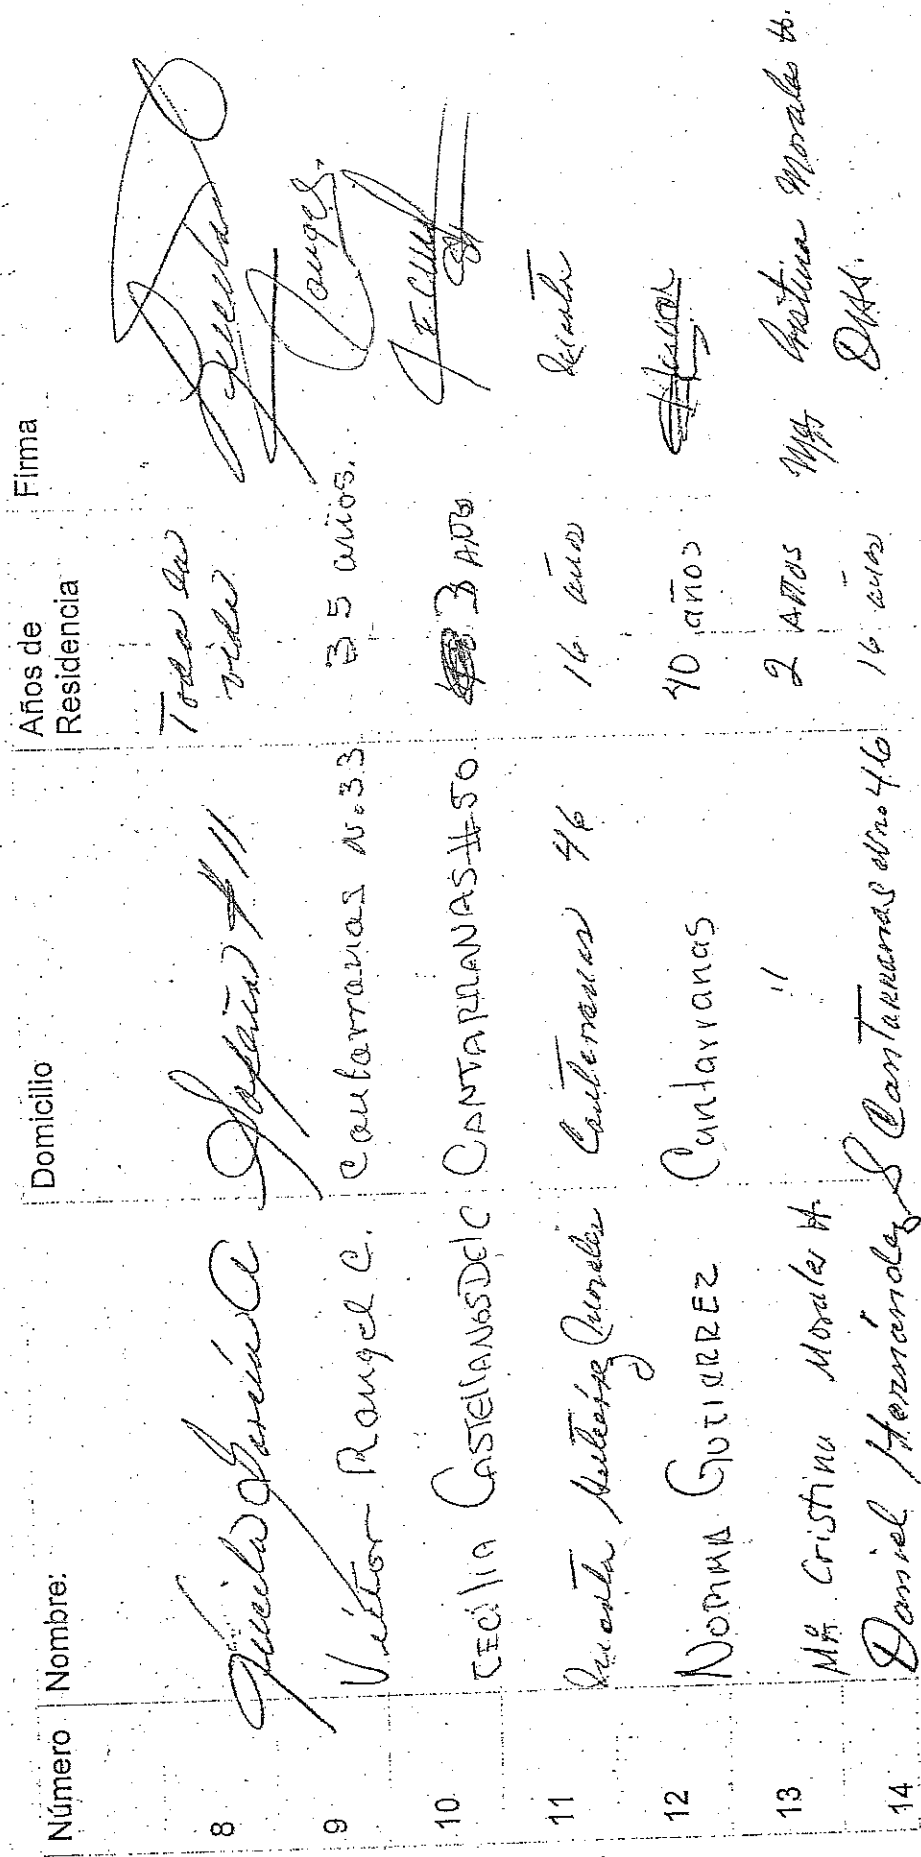 Número Nombre: Domicilio Años de Residencia Firma
8 García # 11 Toda la vida
9 Victor Rangel C. Cantarranas No. 33 35 años. Rangel.
10 CECiliA CASTELLANOS DE C CANTARRANAS # 50 3 AÑOS
11 Gutiérrez Cantarranas 46 16 años
12 NORMA GUTIERREZ Cantarranas 40 años
13 Ma Cristina Morales H. " 2 AÑOS Ma Cristina Morales H.
14 Daniel Hernández S Cantarranas No. 46 16 años